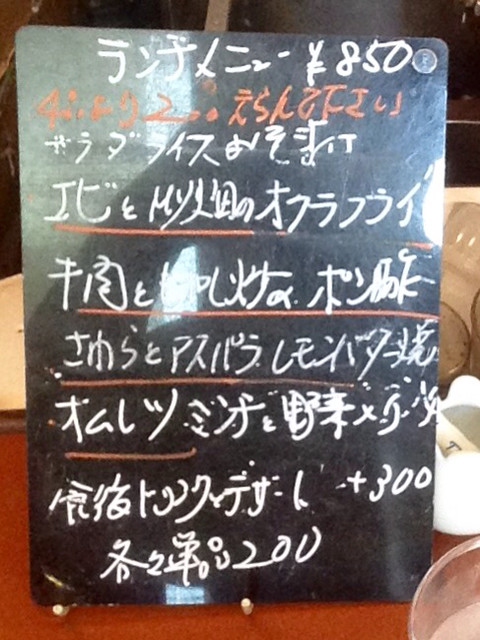 ランチメニュー ¥850
4品より2つえらんで下さい
サラダライスみそ汁付
エビと のオクラフライ
牛肉ともやし炒め ポン酢
さわらとアスパラ レモンバター焼
オムレツ ミンチと野菜
食後ドリンクとデザート +300
各々単品200